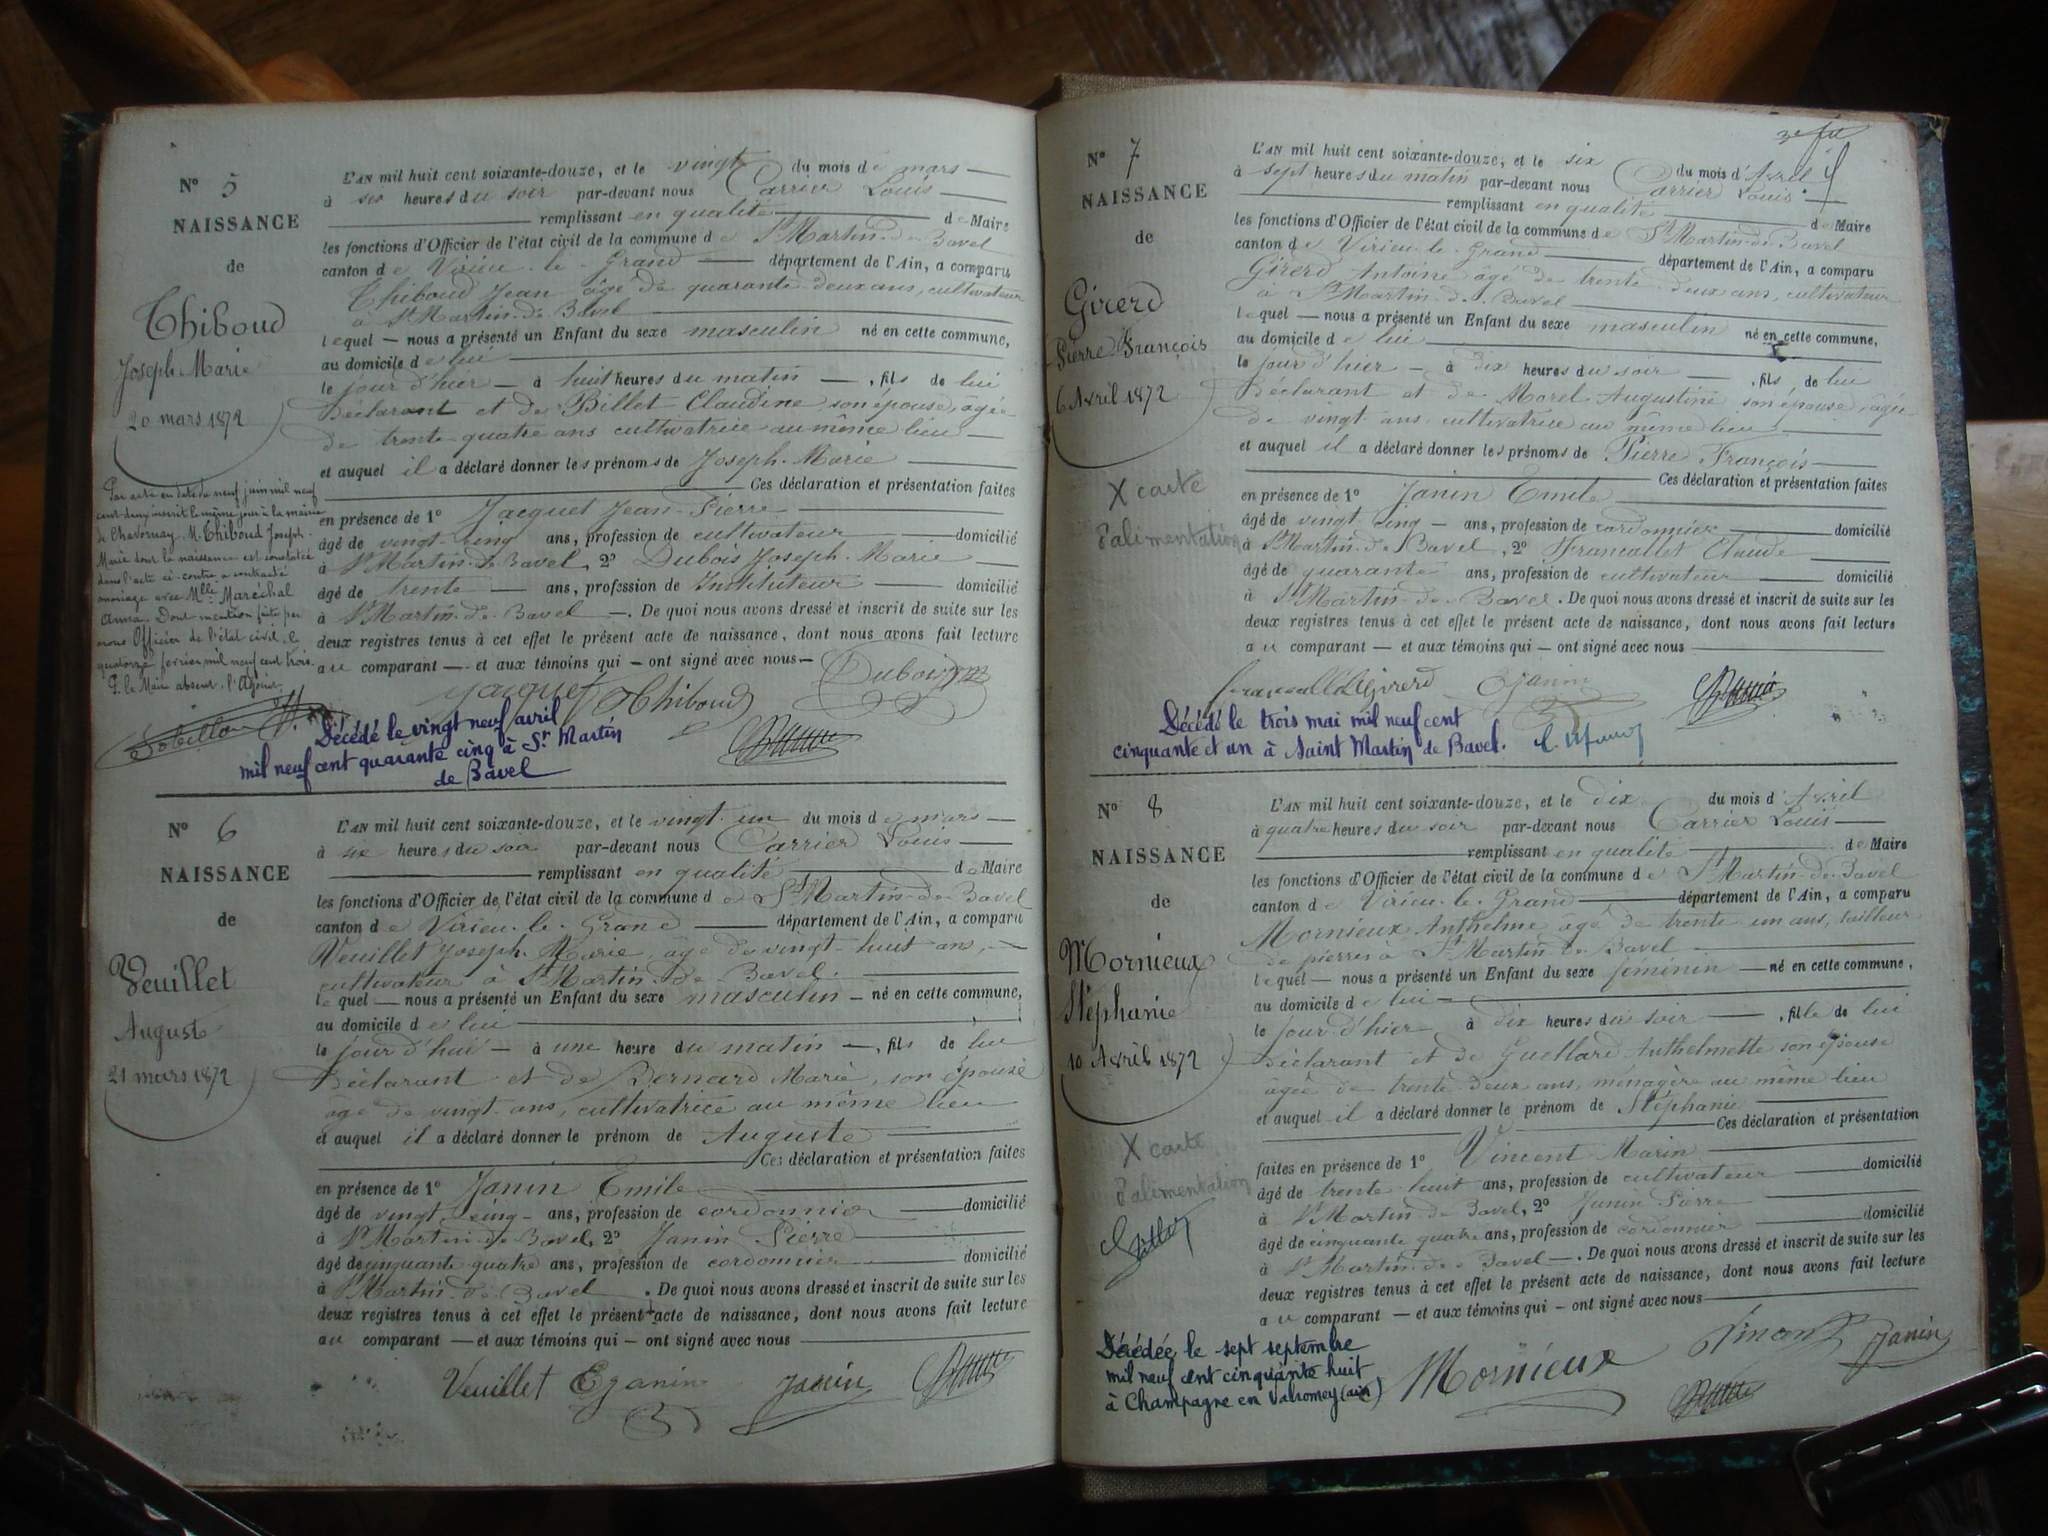 N° 5
NAISSANCE
de
Thiboud
Joseph Marie
20 mars 1872
Par acte en date du neuf juin mil neuf
cent deux, inscrit le même jour à la mairie
de Chavornay, M. Thiboud Joseph
Marie dont la naissance est constatée
dans l'acte ci-contre a contracté
mariage avec Mlle Maréchal
Anna. Dont mention faite par
nous Officier de l'état civil, le
quatorze février mil neuf cent trois.
P. le Maire absent, l'Adjoint
L'AN mil huit cent soixante-douze, et le vingt du mois de mars
à six heures du soir par-devant nous Carrier Louis
remplissant en qualité de Maire
les fonctions d'Officier de l'état civil de la commune de St Martin-de-Bavel
canton de Virieu-le-Grand département de l'Ain, a comparu
Thiboud Jean âgé de quarante-deux ans, cultivateur
à St Martin-de-Bavel
lequel nous a présenté un Enfant du sexe masculin né en cette commune,
au domicile de lui
le jour d'hier à huit heures du matin, fils de lui
Déclarant et de Billet Claudine son épouse, âgée
de trente-quatre ans cultivatrice au même lieu
et auquel il a déclaré donner les prénoms de Joseph-Marie
Ces déclaration et présentation faites
en présence de 1° Jacquet Jean-Pierre
âgé de vingt-cinq ans, profession de cultivateur domicilié
à St Martin-de-Bavel, 2° Dubois Joseph-Marie
âgé de trente ans, profession de Instituteur domicilié
à St Martin-de-Bavel. De quoi nous avons dressé et inscrit de suite sur les
deux registres tenus à cet effet le présent acte de naissance, dont nous avons fait lecture
au comparant et aux témoins qui ont signé avec nous
Jacquet Thiboud Dubois
Décédé le vingt neuf avril
mil neuf cent quarante cinq à St Martin
de Bavel
N° 6
NAISSANCE
de
Veuillet
Auguste
21 mars 1872
L'AN mil huit cent soixante-douze, et le vingt-un du mois de mars
à six heures du soir par-devant nous Carrier Louis
remplissant en qualité de Maire
les fonctions d'Officier de l'état civil de la commune de St Martin-de-Bavel
canton de Virieu-le-Grand département de l'Ain, a comparu
Veuillet Joseph-Marie, âgé de vingt-huit ans,
cultivateur à St Martin-de-Bavel.
lequel nous a présenté un Enfant du sexe masculin né en cette commune,
au domicile de lui
le jour d'hui à une heure du matin, fils de lui
Déclarant et de Bernard Marie, son épouse
âgé de vingt ans, cultivatrice au même lieu
et auquel il a déclaré donner le prénom de Auguste
Ces déclaration et présentation faites
en présence de 1° Janin Emile
âgé de vingt-cinq ans, profession de cordonnier domicilié
à St Martin-de-Bavel, 2° Janin Pierre
âgé de cinquante-quatre ans, profession de cordonnier domicilié
à St Martin-de-Bavel. De quoi nous avons dressé et inscrit de suite sur les
deux registres tenus à cet effet le présent acte de naissance, dont nous avons fait lecture
au comparant et aux témoins qui ont signé avec nous
Veuillet E Janin Janin
N° 7
NAISSANCE
de
Girerd
Pierre François
6 Avril 1872
X carte
d'alimentation
L'AN mil huit cent soixante-douze, et le six du mois d'Avril
à sept heures du matin par-devant nous Carrier Louis
remplissant en qualité de Maire
les fonctions d'Officier de l'état civil de la commune de St Martin-de-Bavel
canton de Virieu-le-Grand département de l'Ain, a comparu
Girerd Antoine âgé de trente-deux ans, cultivateur
à St Martin-de-Bavel
lequel nous a présenté un Enfant du sexe masculin né en cette commune,
au domicile de lui
le jour d'hier à dix heures du soir, fils de lui
Déclarant et de Morel Augustine son épouse, âgée
de vingt ans cultivatrice au même lieu
et auquel il a déclaré donner les prénoms de Pierre François
Ces déclaration et présentation faites
en présence de 1° Janin Emile
âgé de vingt-cinq ans, profession de cordonnier domicilié
à St Martin-de-Bavel, 2° Francallet Claude
âgé de quarante ans, profession de cultivateur domicilié
à St Martin-de-Bavel. De quoi nous avons dressé et inscrit de suite sur les
deux registres tenus à cet effet le présent acte de naissance, dont nous avons fait lecture
au comparant et aux témoins qui ont signé avec nous
Francallet Girerd E Janin
Décédé le trois mai mil neuf cent
cinquante et un à Saint Martin de Bavel.
N° 8
NAISSANCE
de
Mornieux
Stéphanie
10 Avril 1872
X carte
d'alimentation
L'AN mil huit cent soixante-douze, et le dix du mois d'Avril
à quatre heures du soir par-devant nous Carrier Louis
remplissant en qualité de Maire
les fonctions d'Officier de l'état civil de la commune de St Martin-de-Bavel
canton de Virieu-le-Grand département de l'Ain, a comparu
Mornieux Anthelme âgé de trente-un ans, tailleur
de pierres à St Martin-de-Bavel
lequel nous a présenté un Enfant du sexe féminin né en cette commune,
au domicile de lui
le jour d'hier à dix heures du soir, fille de lui
Déclarant et de Guillard Anthelmette son épouse
âgée de trente-deux ans, ménagère au même lieu
et auquel il a déclaré donner le prénom de Stéphanie
Ces déclaration et présentation
faites en présence de 1° Vincent Marin
âgé de trente-huit ans, profession de cultivateur domicilié
à St Martin-de-Bavel, 2° Janin Pierre
âgé de cinquante quatre ans, profession de cordonnier domicilié
à St Martin-de-Bavel. De quoi nous avons dressé et inscrit de suite sur les
deux registres tenus à cet effet le présent acte de naissance, dont nous avons fait lecture
au comparant et aux témoins qui ont signé avec nous
Décédée le sept septembre
mil neuf cent cinquante huit
à Champagne en Valromey (Ain)
Mornieux Vincent Janin